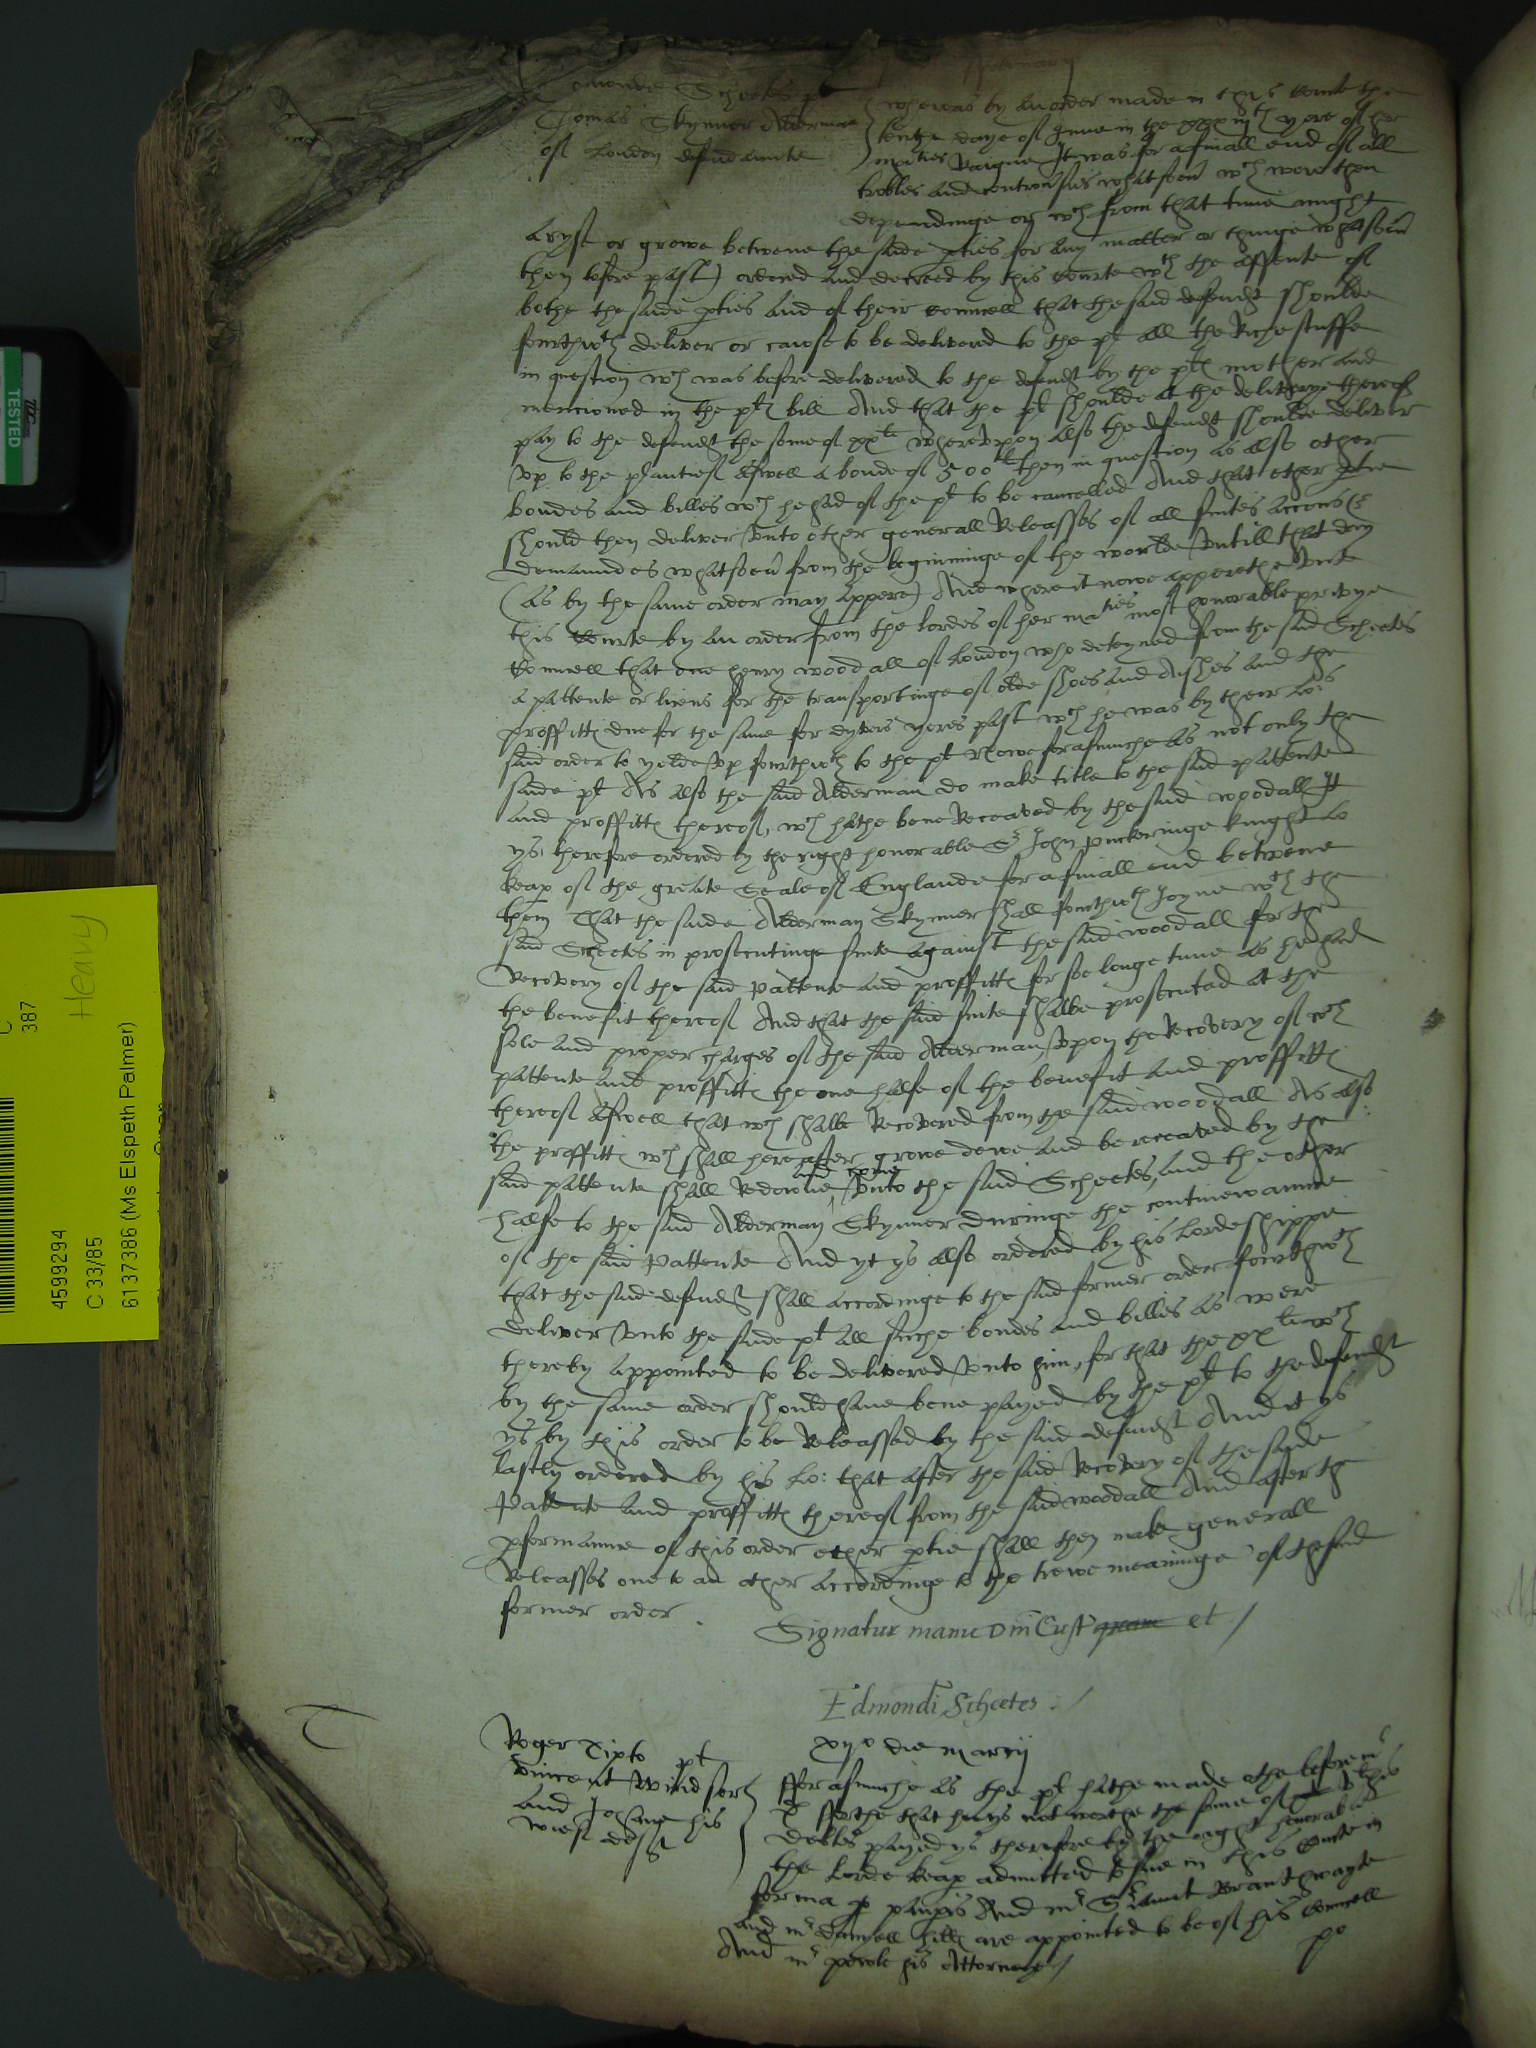 Februarij
Edmonde Scheetes pl
Thomas Skynner Alderman
of London defendaunte
whereas by an order made in this Courte the
tenth daye of June in the xxxiijth yere of her
maties Raigne It was for a finall end of all
trobles and controusies whatsoeu wch were then
dependinge or wch from that time might
aryse or growe betwene the saide pties for any matter or thinge whatsoeu
then before past) ordered and decreed by this courte wth the assente of
bothe the saide pties and of their councell that the said defendt shoulde
fourthwth deliver or cause to be delivered to the pl all the Riche stuffe
in question wch was before delivered to the defendt by the pls mother and
mencioned in the pls bill And that the pl shoulde at the deliverye thereof
pay to the defendt the some of xxli whereupon also the defendt shoulde deliver
up to the plaintief aswell a bonde of 500li then in question as also other
bondes and billes wch he had of the pl to be cancelled And that ether ptie
should then deliver unto other generall Releasses of all suites accons &
demaundes whatsoeu from the beginninge of the worlde untill that day
(as by the same order may appere) And where it nowe apperethe unto
this Courte by an order from the Lordes of her maties most honorable privye
Councell that one henry woodall of London who deteyned from the said Scheetes
a pattente or licens for the transportinge of olde shoes and Aishes and the
proffitts due for the same for dyvers yeres past wch he was by their Los
said order to yelde up fourthwth to the pl Nowe forasmuche as not only the
saide pl As also the said Alderman do make title to the said pattente
and proffitts thereof, wch hathe bene Receaved by the said woodall It
ys therefore ordered by the right honorable Sr John Puckeringe knight Lo
keap of the greate Seale of Englande for a finall end betwene
them That the saide Alderman Skynner shall fourthwth Joyne wth the
said Scheetes in prosecutinge suite against the said woodall for the
Recovery of the said Pattente and proffitts for soe longe time as he had
the benefit thereof And that the said suite shalbe prosecuted at the
sole and proper charges of the said Alderman, Upon the Recovery of wch
pattente and proffitts the one halfe of the benefit and proffitts
thereof aswell that wch shalbe Recovered from the said woodall As also
the proffitts wch shall hereafter growe dewe and be receaved by the
said pattente shall Redownde and come unto the said Scheetes, and the other
halfe to the said Alderman Skynner duringe the contineuaunce
of the said Pattente And yt ys also ordered by his Lordeshippe
that the saide defendt shall accordinge to the said former order fourthwth
deliver unto the saide pl all suche bondes and billes as were
thereby appointed to be delivered unto him, for that the xxli wch
by the same order should have bene payed by the pl to the defendt
ys by this order to be Releassed by the said defendt And it ys
lastly ordered by his Lo: that after the said Recovery of the saide
Pattente and proffitts thereof from the said woodall And after the
pformaunce of this order ether ptie shall then make generall
Releasses one to an other accordinge to the trewe meaninge of the said
former order.
Signatur manu Dni Cust quam et /
Edmondi Scheetes. /
xvijo die Marcij
Roger Tipto pl
Vincent Windsor
and Johane his
wief defts
fforasmuche as the pl hathe made othe before mr
that he ys not worthe the some of vli his
debtes payed ys therefore by the right honorable
the Lorde keap admitted to sue in this Courte in
forma paupis And mr Srieaunt Branthwayte
and mr Danyell hills are appointed to be of his Councell
And mr powle his Attorney /
po
TESTED
C
387
Heavy
4599294
C 33/85
6137386 (Ms Elspeth Palmer)